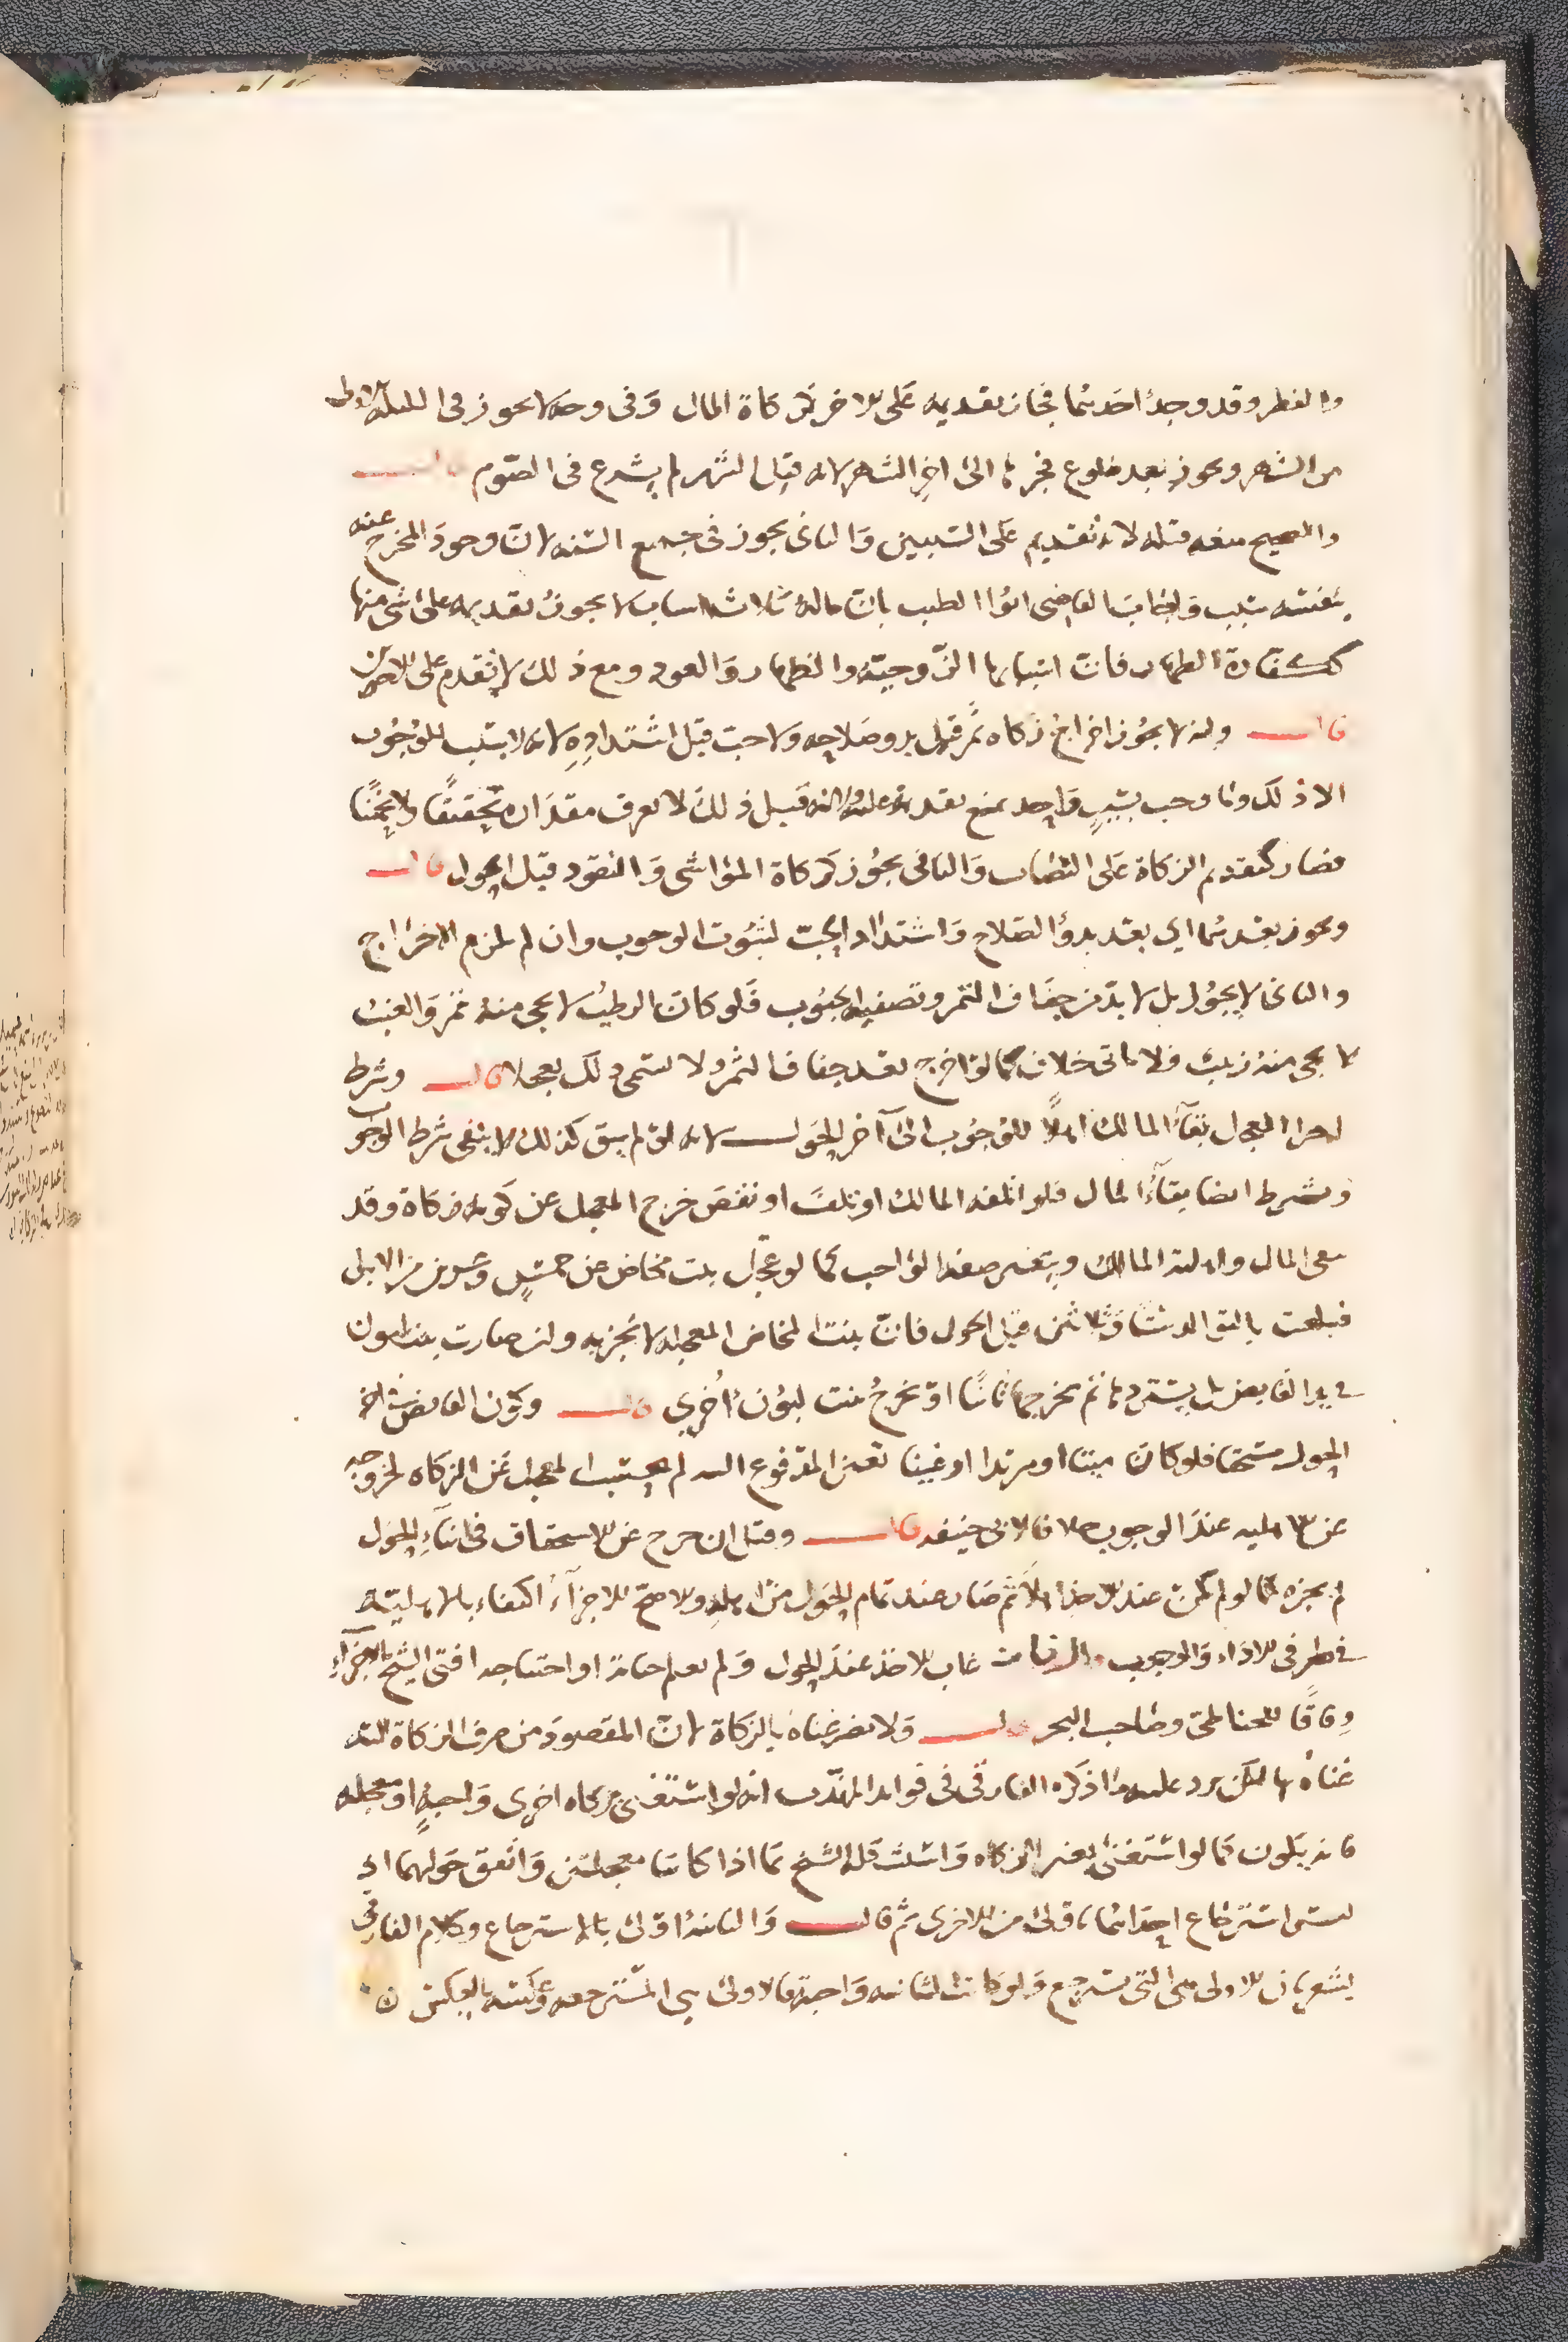 والفطر وقد وجد احدهما فجاز تقديمه على الاخر كزكاة المال وفى وجه لا يجوز فى الليلة الاولى
من الشهر ويجوز بعد طلوع فجرها الى اخر الشهر لانه قبل الشهر لم يشرع فى الصوم قال
والصحيح منعه قبله لانه تقديم على السببين والثانى يجوز فى جميع السنه لان وجود المخرج عنه
بنفسه سبب واجاب القاضى ابو الطيب بان ماله ثلاثه اسباب لا يجوز تقديمه على شى منها
ككفارة الظهار فان اسبابها الزوجية والظهار والعود ومع ذلك لا تقدم على الاخيرين
قال وانه لا يجوز اخراج زكاه ثمر قبل بدو صلاحه ولا حب قبل اشتداده لانه لا سبب للوجوب
الا ذلك وما وجب بسبب واحد يمتنع تقديمه عليه ولانه قبل ذلك لا يعرف مقداره تحقيقا ولا تخمينا
فصار كتقديم الزكاة على النصاب والثانى يجوز كزكاة المواشى والنقود قبل الحول قال
ويجوز بعدهما اى بعد بدو الصلاح واشتداد الحب لثبوت الوجوب وان لم يلزم الاخراج
والثانى لا يجوز بل لا بد من جفاف الثمر وتصفية الحبوب فلو كان الرطب لا يجى منه تمر والعنب
لا يجى منه زبيب فلا ياتى خلاف كما لو اخرج بعد جفاف الثمر ولا يسمى ذلك تعجيلا قال وشرط
اجزا المعجل بقآء المالك اهلا للوجوب الى آخر الحول لانه لو لم يبق كذلك لانتفى شرط الوجوب
ويشرط ايضا بقآء المال فلو اتلفه المالك او تلف او نقص خرج المعجل عن كونه زكاة وقد
يبقى المال واهلية المالك ويتغير صفة الواجب كما لو عجل بنت مخاض عن خمس وعشرين من الابل
فبلغت بالتوالد ستا وثلاثين قبل الحول فان بنت المخاض المعجله لا تجزيه وان صارت بنت لبون
فى يد القابض بل يستردها ثم يخرجها ثانيا او يخرج بنت لبون اخرى قال وكون القابض فى اخر
الحول مستحقا فلو كان ميتا او مرتدا او غنيا بغير المدفوع اليه لم يحتسب المعجل عن الزكاه لخروجه
عن الاهليه عند الوجوب خلافا لابى حنيفه قال وقيل ان خرج عن الاستحقاق فى اثنآء الحول
لم يجزه كما لو لم يكن عند الاخذ اهلا ثم صار عند تمام الحول من اهله والاصح الاجزآء اكتفاء بالاهلية
فى طرفى الاداء والوجوب غاب الاخذ عند الحول ولم يعلم حياته او احتياجه افتى الشيخ بالاجزآء
وفاقا للحناطى وصاحب البحر قال ولا يضر غناه بالزكاة لان المقصود من صرف الزكاة اليه
غناه بها لكن يرد عليه ما ذكره الفارقى فى فوايد المهذب انه لو استغنى بزكاه اخرى واجبة او معجله
فانه يكون كما لو استغنى بغير الزكاه واستشكله الشيخ بما اذا كانتا معجلتين واتفق حولهما اذ
ليس استرجاع احداهما باولى من الاخرى ثم قال والثانيه اولى بالاسترجاع وكلام الفارقى
يشعر بان الاولى هى التى تسترجع ولو كانت الثانيه واجبة فالاولى هى المسترجعه وعكسه بالعكس